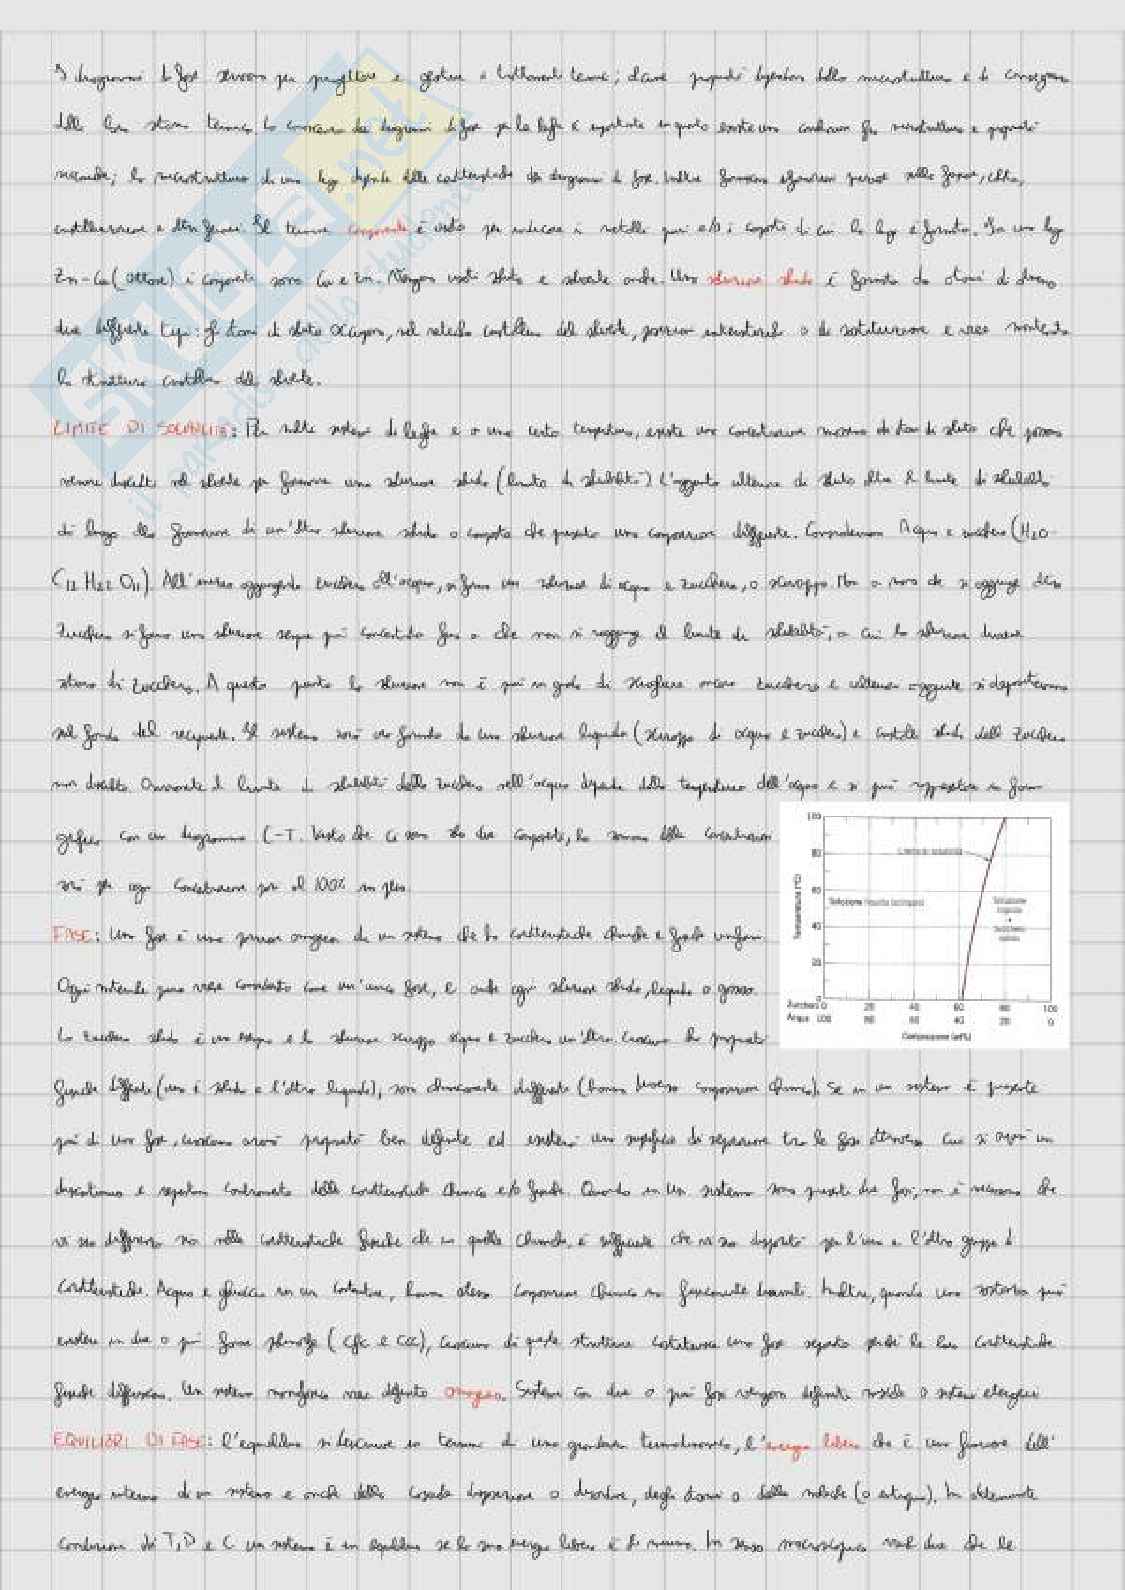 I diagrammi di fase servono per progettare e gestire i trattamenti termici; alcune proprietà dipendono dalla microstruttura e di conseguenza
dalla loro storia termica. La conoscenza dei diagrammi di fase per le leghe è importante in quanto esiste una fra microstruttura e proprietà
meccaniche; la microstruttura di una lega dipende dalle caratteristiche dei diagrammi di fase. Inoltre forniscono informazioni sulla fusione,
cristallizzazione e altri fenomeni. Il termine componente è usato per indicare i metalli puri e/o i composti di cui la lega è formata. In una lega
Zn-Cu (ottone) i componenti sono Cu e Zn. Vengono usati soluto e solvente anche. Una soluzione solida è formata da atomi di almeno
due differenti tipi: gli atomi di soluto occupano, nel reticolo cristallino del solvente, posizioni interstiziali o di sostituzione e viene mantenuta
la struttura cristallina del solvente.
LIMITE DI SOLUBILITÀ: Per molti sistemi di leghe e a una certa temperatura, esiste una concentrazione massima di atomi di soluto che possono
venire disciolti nel solvente per formare una soluzione solida (limite di solubilità). L'aggiunta ulteriore di soluto oltre il limite di solubilità
dà luogo alla formazione di un'altra soluzione solida o composto che presenta una composizione differente. Consideriamo Acqua e zucchero (H2O-
C12 H22 O11). All'inizio aggiungendo zucchero all'acqua, si forma una soluzione di acqua e zucchero, o sciroppo. Man a mano che si aggiunge altro
zucchero si forma una soluzione sempre più concentrata fino a che non si raggiunge il limite di solubilità, a cui la soluzione diviene
satura di zucchero. A questo punto la soluzione non è più in grado di sciogliere ancora zucchero e ulteriori aggiunte si depositeranno
sul fondo del recipiente. Il sistema sarà ora formato da una soluzione liquida (sciroppo di acqua e zucchero) e cristalli solidi dello zucchero
non disciolto. il limite di solubilità dello zucchero nell'acqua dipende dalla temperatura dell'acqua e si può rappresentare in forma
grafica con un diagramma C-T. Visto che ci sono solo due componenti, la somma delle concentrazioni
sarà per ogni concentrazione pari al 100% in peso.
100
80
60
40
20
0
Temperatura (°C)
Limite di solubilità
Soluzione liquida (sciroppo)
Soluzione
liquida
+
Zucchero
solido
Zucchero 0 20 40 60 80 100
Acqua 100 80 60 40 20 0
Composizione (wt%)
FASE: Una fase è una porzione omogenea di un sistema che ha caratteristiche chimiche e fisiche uniformi.
Ogni materiale puro viene considerato come un'unica fase, e anche ogni soluzione solida, liquida o gassosa.
Lo zucchero solido è una e la soluzione sciroppo acqua e zucchero un'altra. Ciascuna ha proprietà
fisiche differenti (una è solida e l'altra liquida), sono chimicamente differenti (hanno diversa composizione chimica). Se in un sistema è presente
più di una fase, ciascuna avrà proprietà ben definite ed esisterà una superficie di separazione tra le fasi attraverso cui si avrà un
e repentino cambiamento delle caratteristiche chimiche e/o fisiche. Quando in un sistema sono presenti due fasi, non è necessario che
vi sia differenza sia nelle caratteristiche fisiche che in quelle chimiche, è sufficiente che vi sia disparità per l'uno o l'altro gruppo di
caratteristiche. Acqua e ghiaccio in un contenitore, hanno stessa composizione chimica ma fisicamente diversi. Inoltre, quando una sostanza può
esistere in due o più forme (cfc e ccc), ciascuna di queste strutture costituisce una fase separata perché ha le loro caratteristiche
fisiche differiscono. Un sistema monofasico viene definito omogeneo. Sistemi con due o più fasi vengono definiti miscele o sistemi eterogenei
EQUILIBRI DI FASE: L'equilibrio si descrive in termini di una grandezza termodinamica, l'energia libera che è una funzione dell'
energia interna di un sistema e anche della casuale dispersione o disordine, degli atomi o delle molecole (o entropia). In determinate
condizioni di T, P e C un sistema è in equilibrio se la sua energia libera è al minimo. In senso macroscopico vuol dire che le